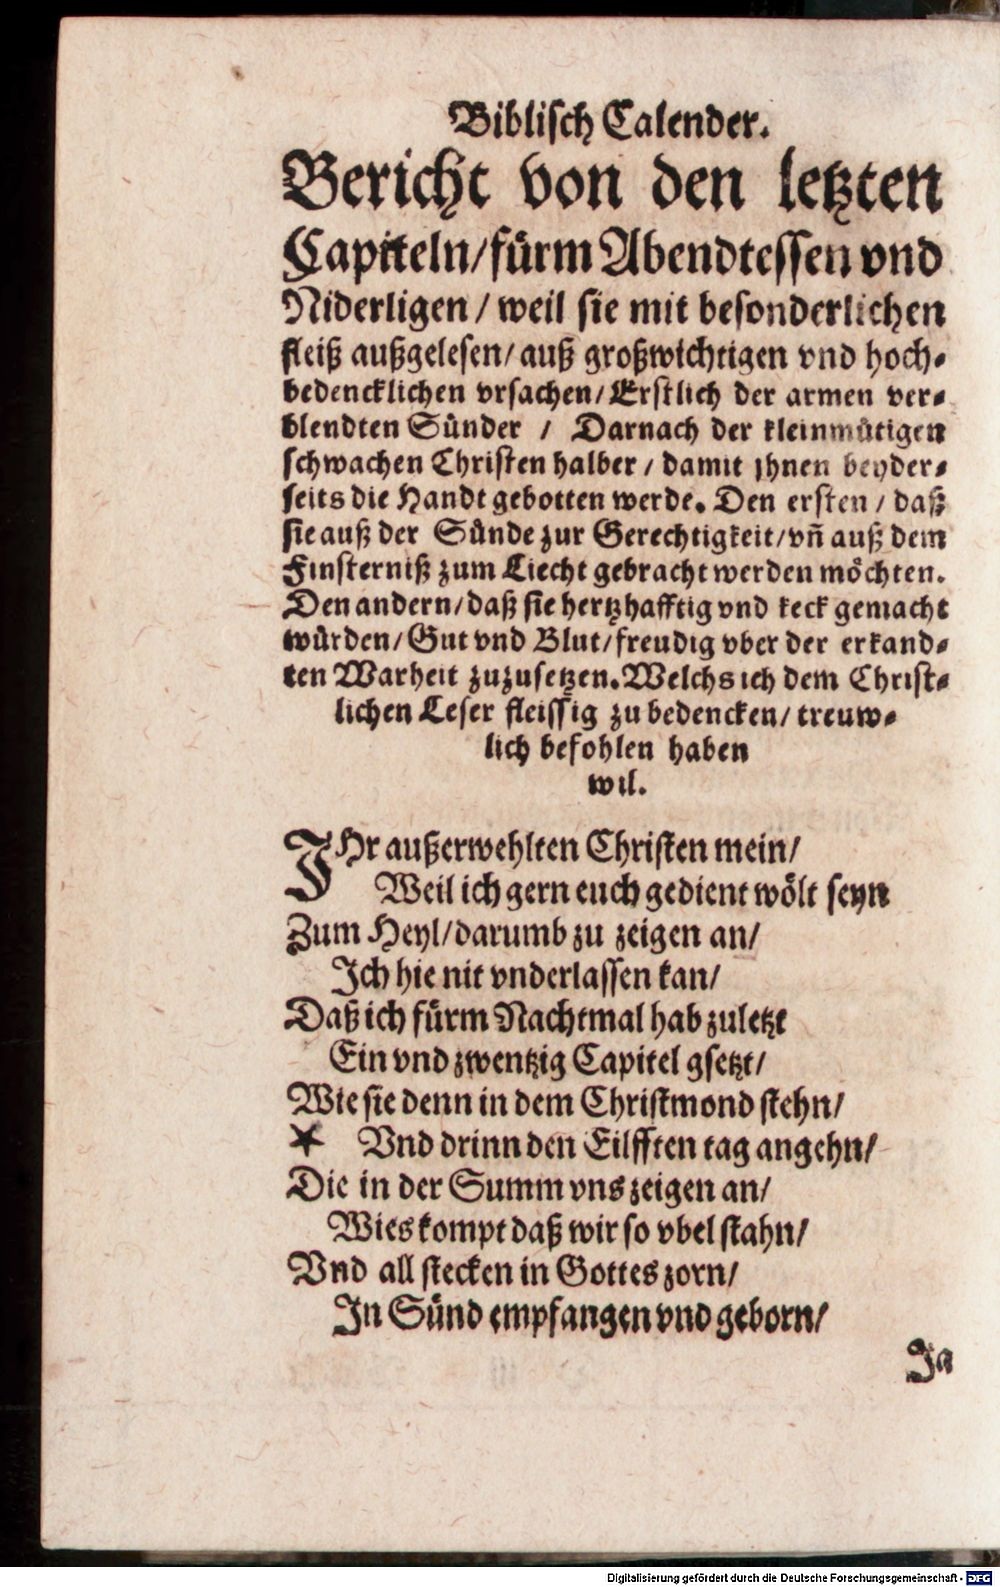 Biblisch Calender.
Bericht von den letzten
Capiteln/fürm Abendtessen vnd
Niderligen / weil sie mit besonderlichen
fleiß außgelesen/ auß großwichtigen vnd hoch-
bedencklichen vrsachen/ Erstlich der armen ver-
blendten Sünder / Darnach der kleinmütigen
schwachen Christen halber / damit jhnen beyder-
seits die Handt gebotten werde. Den ersten / daß
sie auß der Sünde zur Gerechtigkeit/ vñ auß dem
Finsterniß zum Liecht gebracht werden möchten.
Den andern/ daß sie hertzhafftig vnd keck gemacht
würden/ Gut vnd Blut/ freudig vber der erkand-
ten Warheit zuzusetzen. Welchs ich dem Christ-
lichen Leser fleissig zu bedencken/ treuw-
lich befohlen haben
wil.
IHr außerwehlten Christen mein/
Weil ich gern euch gedient wölt seyn
Zum Heyl/ darumb zu zeigen an/
Ich hie nit vnderlassen kan/
Daß ich fürm Nachtmal hab zuletzt
Ein vnd zwentzig Capitel gsetzt/
Wie sie denn in dem Christmond stehn/
* Vnd drinn den Eilfften tag angehn/
Die in der Summ vns zeigen an/
Wies kompt daß wir so vbel stahn/
Vnd all stecken in Gottes zorn/
In Sünd empfangen vnd geborn/
Ja
Digitalisierung gefördert durch die Deutsche Forschungsgemeinschaft - DFG